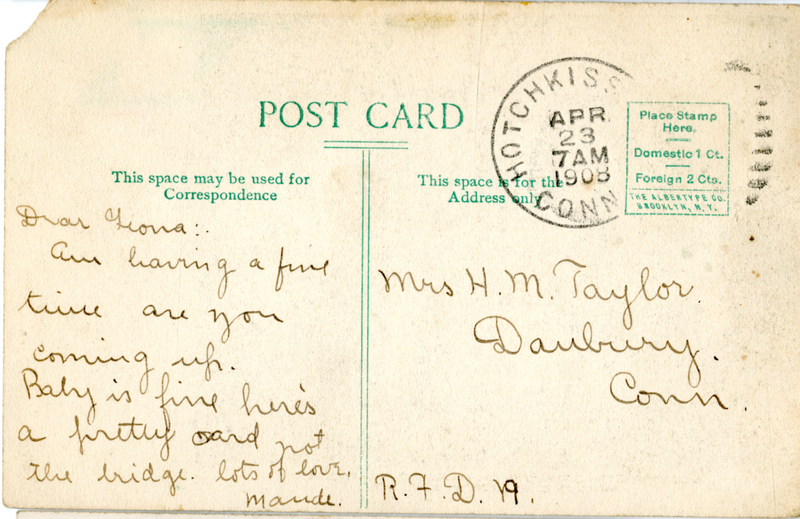 POST CARD
This space may be used for
Correspondence
This space is for the
Address only
HOTCHKISS
APR
23
7AM
1908
CONN
Place Stamp
Here.
Domestic 1 Ct.
Foreign 2 Cts.
THE ALBERTYPE CO.
BROOKLYN, N.Y.
Dear Leona:.
Am having a fine
time are you
coming up.
Baby is fine here's
a pretty card not
the bridge. lots of love,
Maude.
Mrs H. M. Taylor.
Danbury.
Conn.
R.F.D. 19.